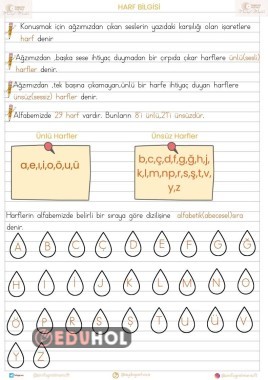 HARF BİLGİSİ
Konuşmak için ağzımızdan çıkan seslerin yazıdaki karşılığı olan işaretlere
harf denir.
Ağzımızdan ,başka sese ihtiyaç duymadan bir çırpıda çıkar harflere ünlü(sesli)
harfler denir.
Ağzımızdan ,tek başına çıkamayan,ünlü bir harfe ihtiyaç duyan harflere
ünsüz(sessiz) harfler denir.
Alfabemizde 29 harf vardır. Bunların 8'i ünlü,21'i ünsüzdür.
Ünlü Harfler
Ünsüz Harfler
a,e,ı,i,o,ö,u,ü
b,c,ç,d,f,g,ğ,h,j,
k,l,m,n,p,r,s,ş,t,v,
y,z
Harflerin alfabemizde belirli bir sıraya göre dizilişine alfabetik(abecesel)sıra
denir.
A B C Ç D E F G Ğ
H I İ J K L M N O
Ö P R S Ş T U Ü V
Y Z
EDUHOL